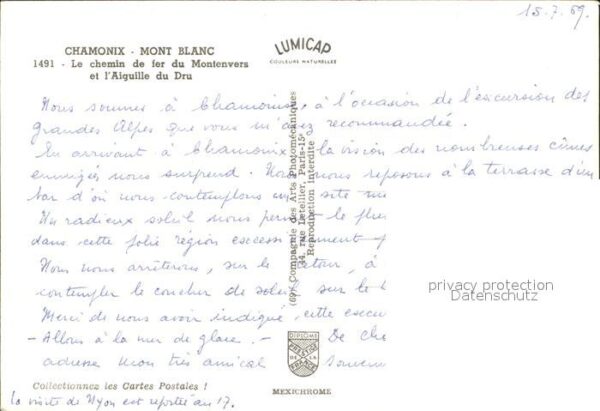 15.7.69.
CHAMONIX - MONT BLANC
1491 - Le chemin de fer du Montenvers
et l'Aiguille du Dru
LUMICAP
COULEURS NATURELLES
Nous sommes à Chamonix, à l'occasion de l'excursion des
grandes Alpes que vous m'avez recommandée.
En arrivant à Chamonix la vision des nombreuses cimes
enneigées nous surprend. Nous nous reposons à la terrasse d'un
bar d'où nous contemplons un site
Un radieux soleil nous le
dans cette jolie région
Nous nous arrêterons, sur le retour, à
contempler le coucher de soleil sur le
Merci de nous avoir indiqué, cette
- Allons à la mer de glace. - De
adresse mon très amical
la visite de Nyon est reportée au 17.
(69) Compagnie des Arts Photomécaniques
44, rue Letellier, Paris-15e
Reproduction interdite
privacy protection
Datenschutz
DIPLOME
PRESTIGE
DE LA
FRANCE
Collectionnez les Cartes Postales !
MEXICHROME